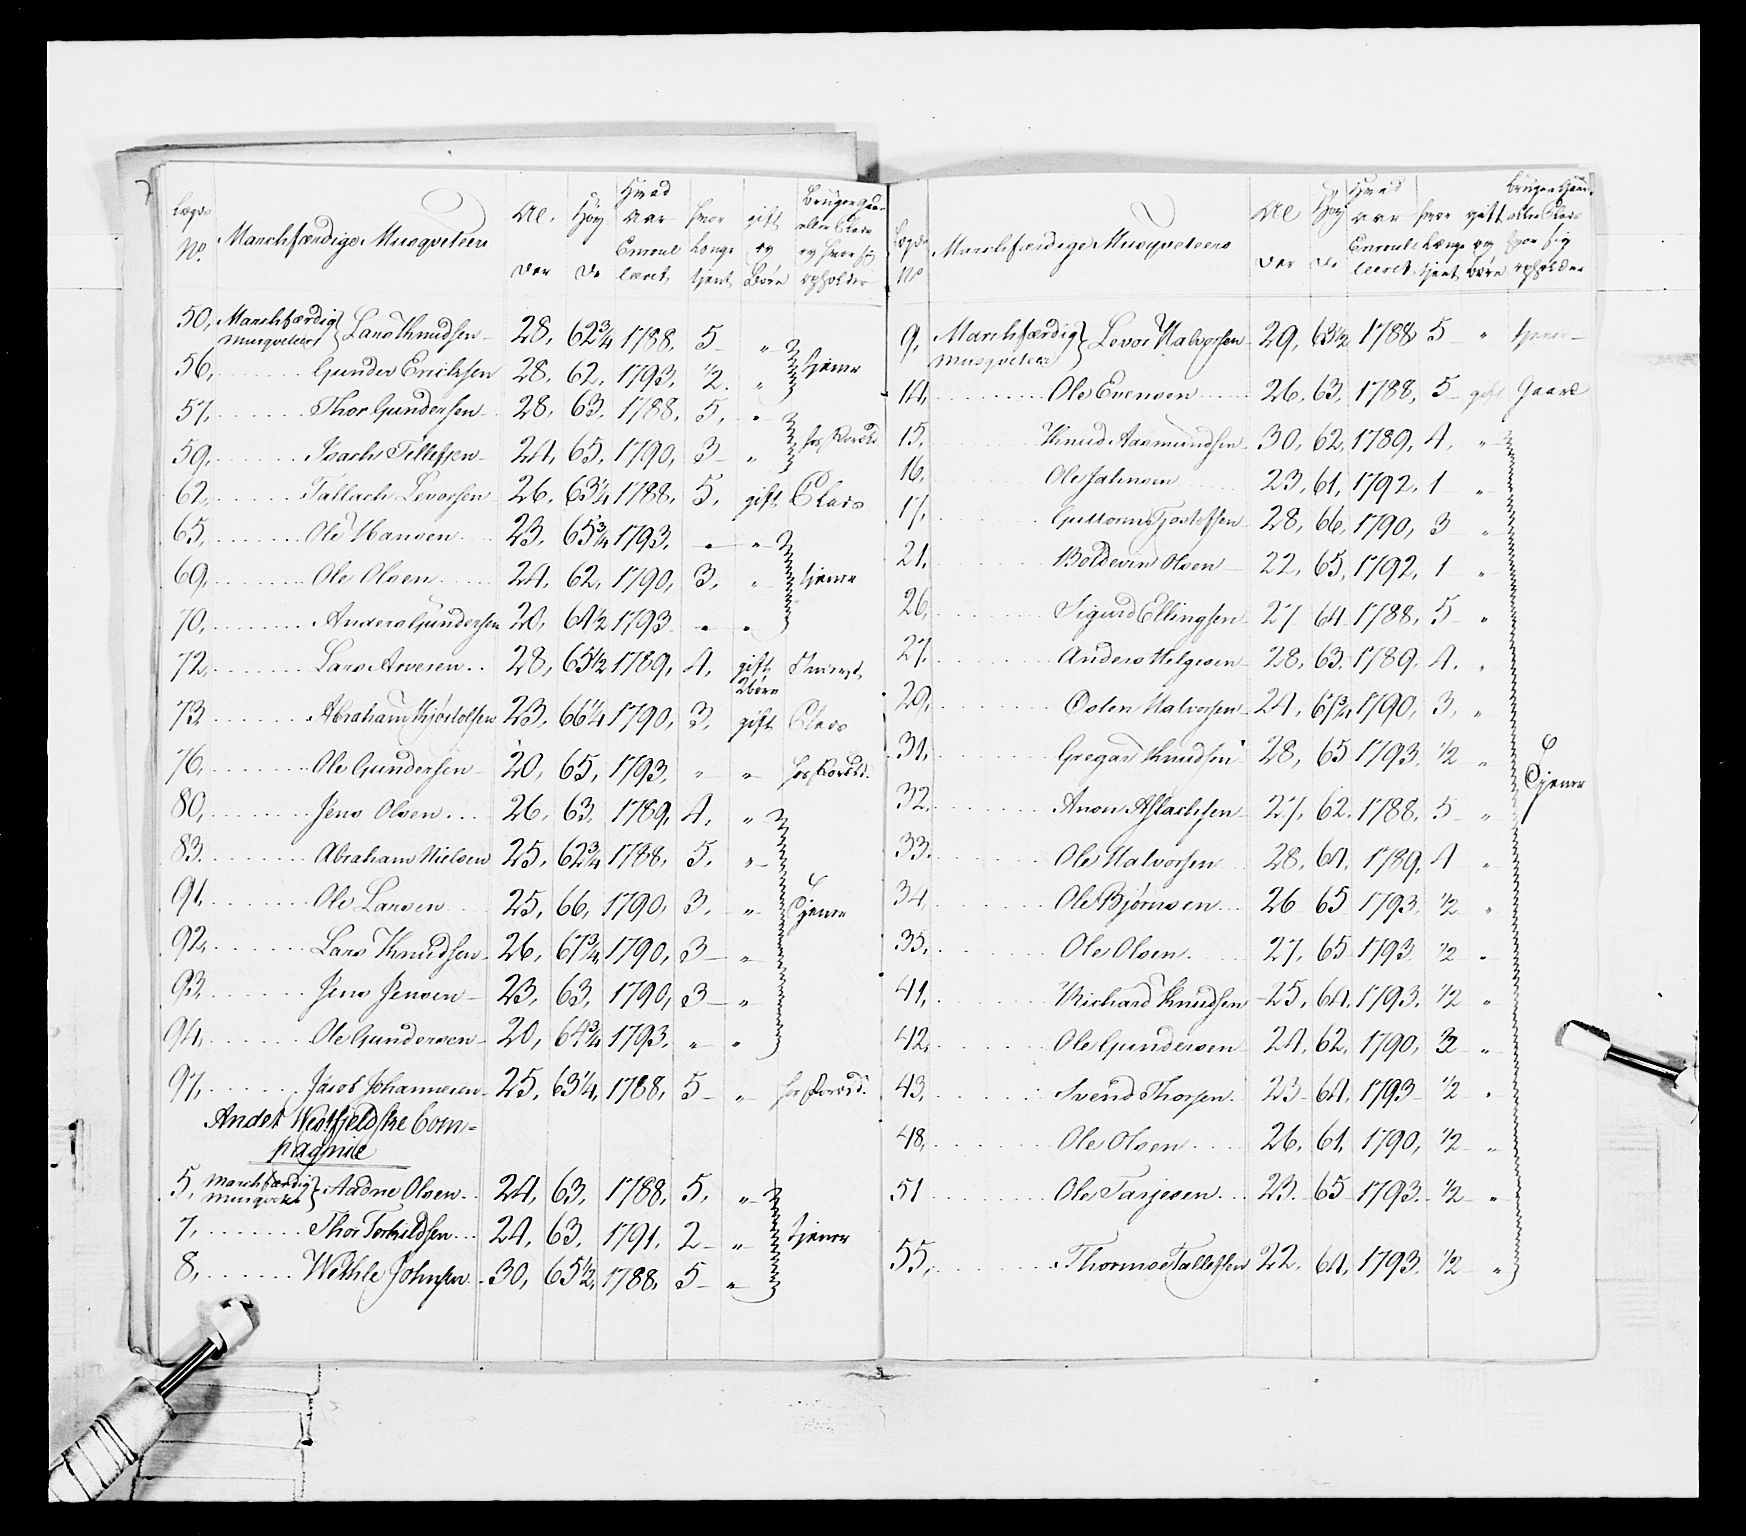 Lægds No. Marchfærdige Musqveteers Al der Høy de Hvad Aar Enroul leeret hvor Længe tjent gift og Børn Bruger Gaard eller Plads og hvor sig opholder
50, Marchfærdig Musqveteer Lars Knudsen 28, 62 3/4 1788, 5 "
56, Gunder Erichsen 28, 62, 1793, 1/2 " tjener
57, Thor Gundersen 28, 63, 1788, 5, "
59, Isach Tellefsen 24, 65, 1790, 3 "
62, Tallach Levorsen 26, 63 1/4 1788, 5, gift Plads
65, Ole Hansen 23, 65 3/4 1793, " "
69, Ole Olsen 24, 62, 1790, 3, " tjener
70, Anders Gundersen 20, 64 1/2 1793 " "
72, Lars Arvesen 28, 65 1/2 1789, 4, gift 2 børn
73 Abraham Kjøstolsen 23, 66 1/4 1790, 3, gift Plads
76, Ole Gundersen 20, 65, 1793, " "
80, Jens Olsen 26, 63, 1789, 4, "
83 Abraham Nielsen 25, 62 3/4 1788, 5, "
91, Ole Larsen 25, 66, 1790, 3, " Tjener
92, Lars Knudsen 26, 67 3/4 1790, 3 "
93, Jens Jensen 23, 63, 1790, 3 "
94, Ole Gundersen 20, 64 3/4 1793, " "
97, Jacob Johannesen 25, 63 1/4, 1788, 5 "
Andet Westfjeldske Com=
pagnie
5, Marchfærdig Musqveteer Aadne Olsen 24, 63, 1788, 5, "
7, Thor Torkildsen 24, 63, 1791, 2 " tjener
8, Wethle Johnsen 30, 65 1/2, 1788, 5 "
Lægds No Marchfærdige Musqveteers Al der Høy de Hvad Aar Enroul leeret hvor Længe tjent gift og Børn bruger Gaard eller Plads hvor sig opholder
9, Marchfærdig Musqveteer Levor Halvorsen 29, 63 1/2 1788, 5 " tjener
14, Ole Evensen 26, 63, 1788, 5 gift Gaard
15, Knud Aasmundsen 30, 62, 1789, 4, "
16, Ole Johnsen 23, 61, 1792, 1 "
17, Guttorm Tjostolfsen 28, 66, 1790, 3 "
21, Boldevin Olsen 22, 65, 1792, 1 "
26, Sigurd Ellingsen 27 64 1788, 5 "
27, Anders Helgesen 28, 63, 1789, 4, "
29, Osten Halvorsen 24, 67 3/4 1790, 3, "
31, Gregar Knudsen 28, 65 1793, 1/2 " Tjener
32, Anon Aslachsen 27, 62, 1788, 5 "
33, Ole Halvorsen 28, 64, 1789, 4 "
34, Ole Bjørnsen 26 65 1793, 1/2 "
35, Ole Olsen 27, 65 1793 1/2 "
41, Richard Knudsen 25, 64, 1793, 1/2 "
42, Ole Gundersen 24, 62, 1790, "
43, Svend Thorsen 23 64, 1793 1/2 "
48, Ole Olsen 26, 61, 1790, 1/2 "
51 Ole Tarjesen 23, 65 1793 1/2 "
55, Thormoe Tallefsen 22, 64, 1793 1/2 "